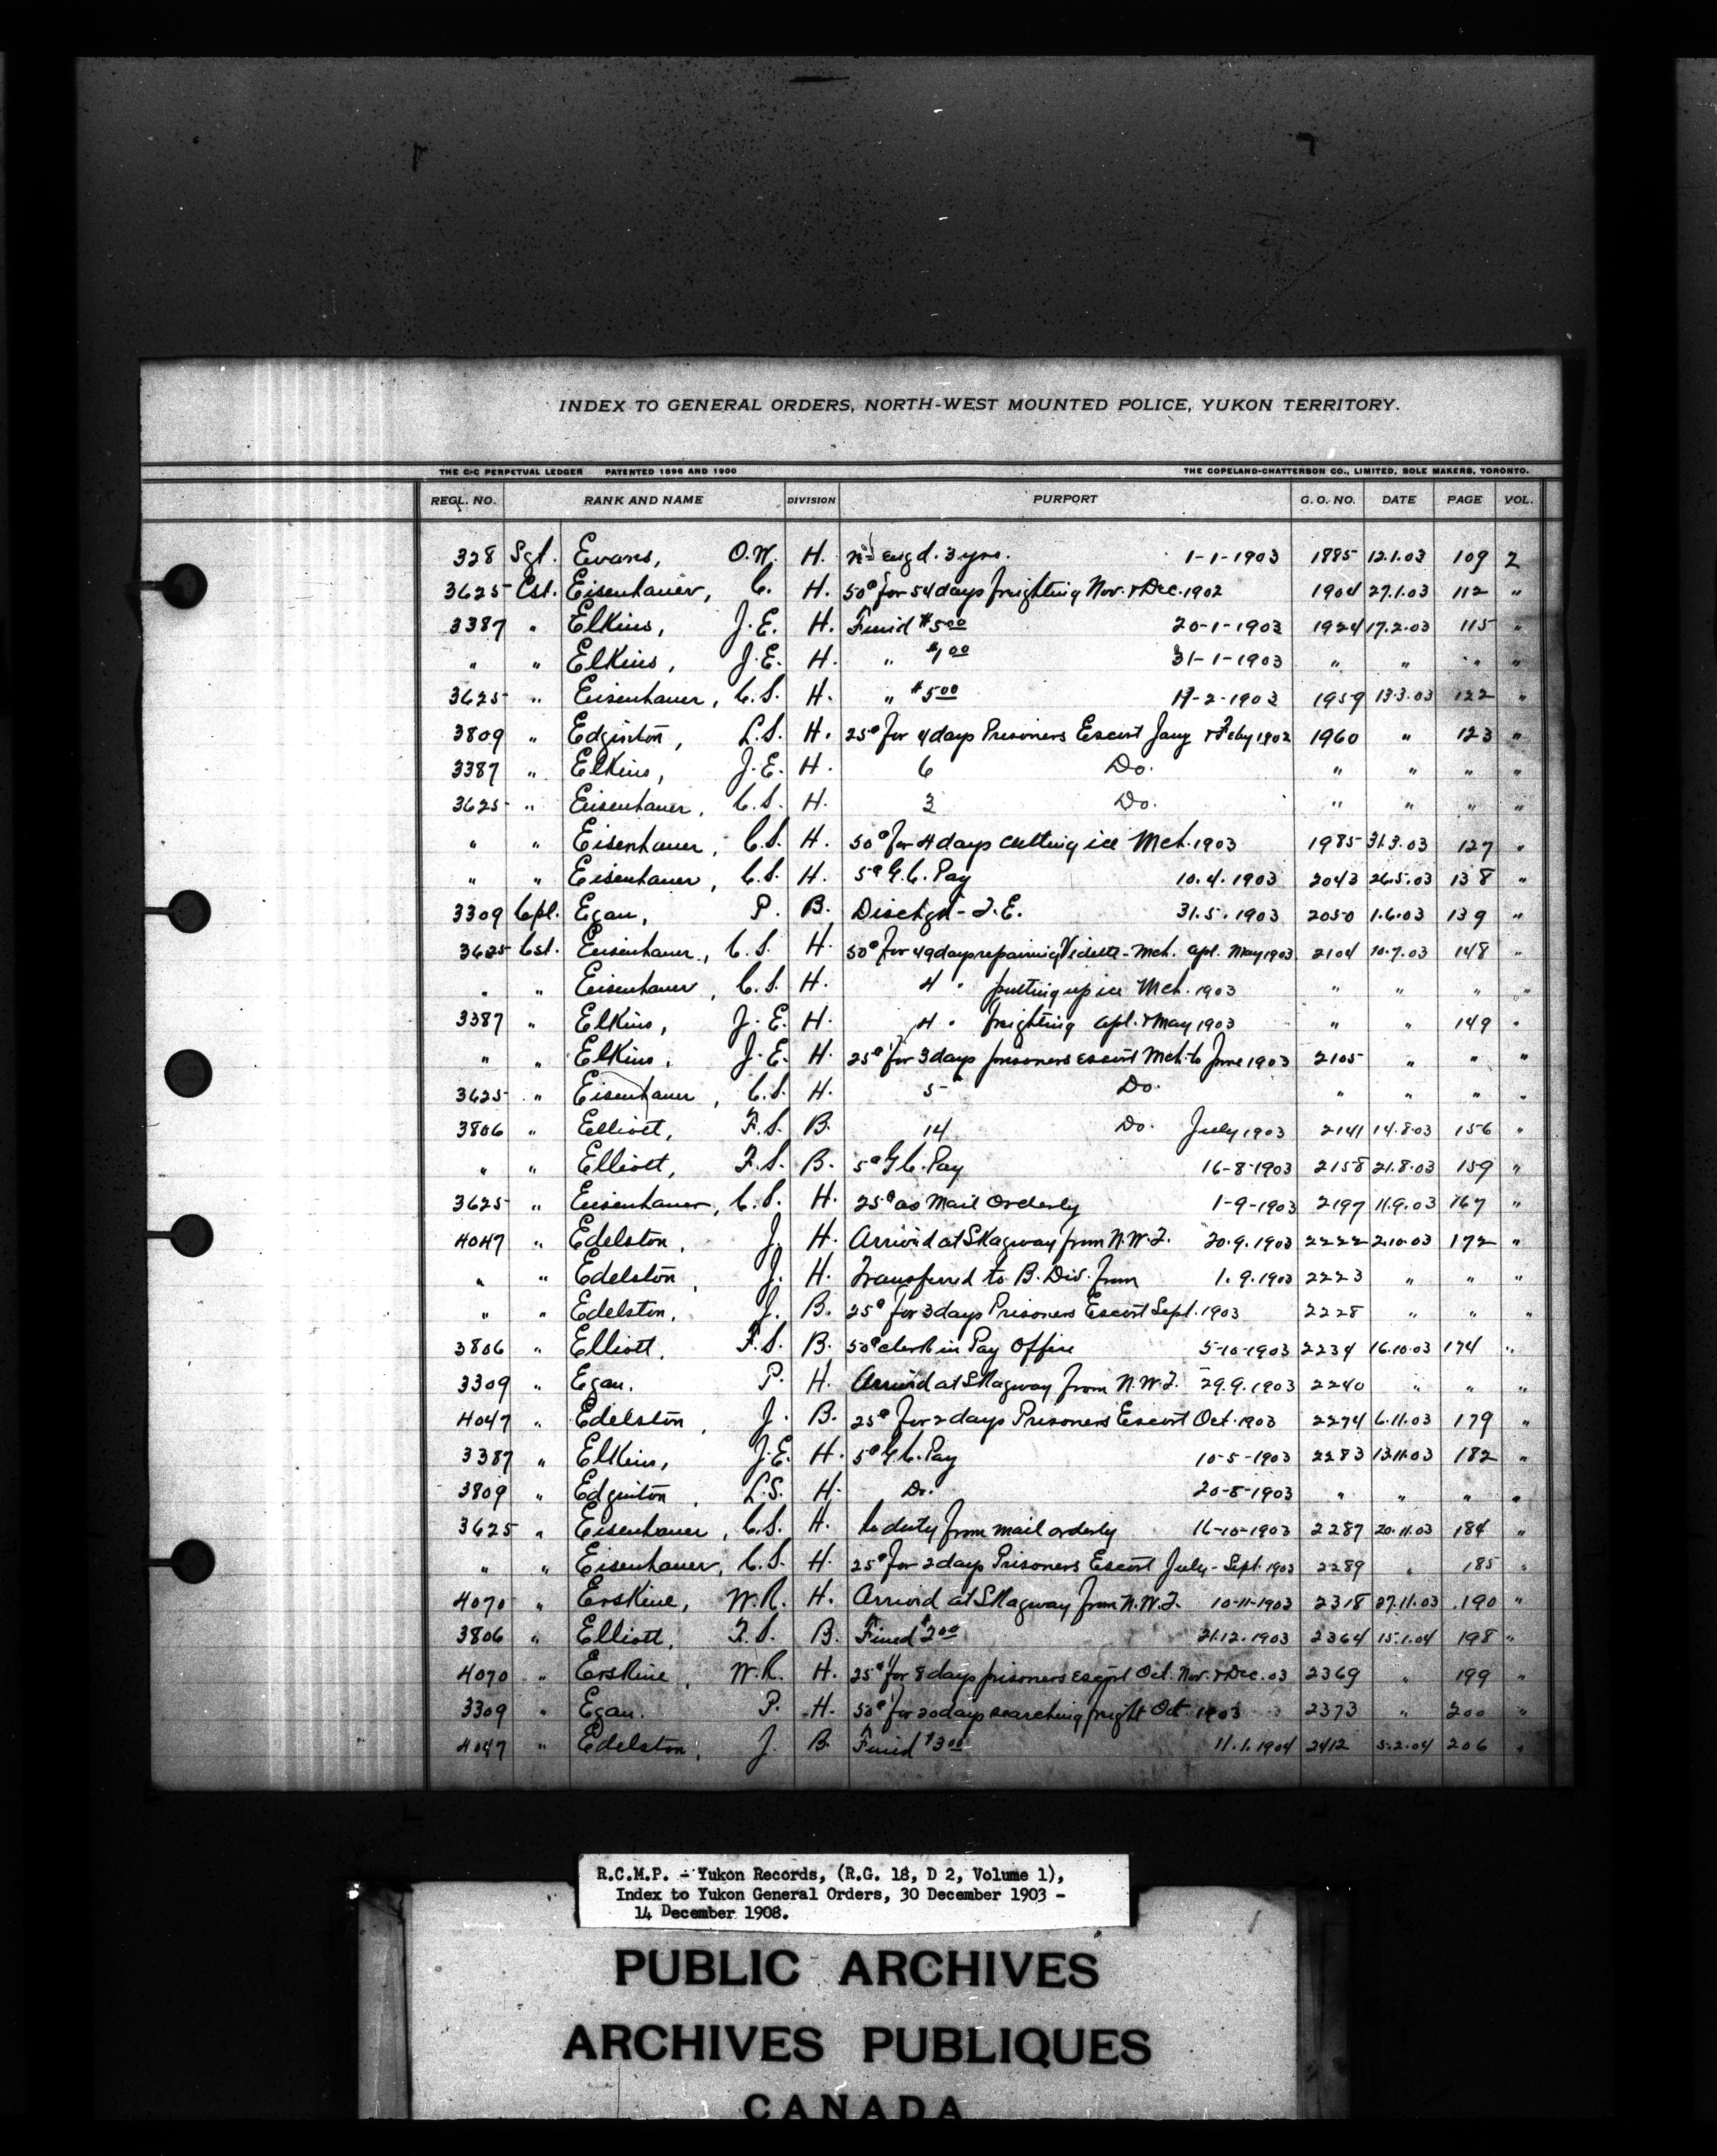 INDEX TO GENERAL ORDERS, NORTH-WEST MOUNTED POLICE, YUKON TERRITORY.
THE C-C PERPETUAL LEDGER PATENTED 1896 AND 1900 THE COPELAND-CHATTERSON CO., LIMITED, SOLE MAKERS, TORONTO.
REGL. NO. RANK AND NAME DIVISION PURPORT G. O. NO. DATE PAGE VOL.
328 Sgt. Evans, O.W. H. engd. 3 yrs. 1-1-1903 1885 12.1.03 109 2
3625 Cst. Eisenhauer, C. H. 50¢ for 54 days freighting Nov. & Dec. 1902 1904 27.1.03 112 "
3387 " Elkins, J.E. H. Fined $5.00 20-1-1903 1924 17.2.03 115 "
" " Elkins, J.E. H. " $1.00 31-1-1903 " " " "
3625 " Eisenhauer, C.S. H. " $5.00 -2-1903 1959 13.3.03 122 "
3809 " Edginton, L.S. H. 25¢ for 4 days Prisoners Escort Jany & Feby 1902 1960 " 123 "
3387 " Elkins, J.E. H. 6 Do. " " " "
3625 " Eisenhauer, C.S. H. 3 Do. " " " "
" " Eisenhauer, C.S. H. 50¢ for 4 days cutting ice Mch. 1903 1985 31.3.03 127 "
" " Eisenhauer, C.S. H. 5¢ G.C. Pay 10.4.1903 2043 26.5.03 138 "
3309 Cpl. Egan, P. B. Dischgd - T.E. 31.5.1903 2050 1.6.03 139 "
3625 Cst. Eisenhauer, C.S. H. 50¢ for 49 days repairing Vidette - Mch. Apl. May 1903 2104 10.7.03 148 "
" " Eisenhauer, C.S. H. 4 " putting up ice Mch. 1903 " " " "
3387 " Elkins, J.E. H. 4 " freighting Apl. & May 1903 " " 149 "
" " Elkins, J.E. H. 25¢ for 3 days prisoners escort Mch. to June 1903 2105 " " "
3625 " Eisenhauer, C.S. H. 5 " Do. " " " "
3806 " Elliott, F.S. B. 14 Do. July 1903 2141 14.8.03 156 "
" " Elliott, F.S. B. 5¢ G.C. Pay 16-8-1903 2158 21.8.03 159 "
3625 " Eisenhauer, C.S. H. 25¢ as Mail Orderly 1-9-1903 2197 11.9.03 167 "
4047 " Edelston, J. H. Arrived at Skagway from N.W.T. 20.9.1903 2222 2.10.03 172 "
" " Edelston, J. H. Transferred to B. Div. from 1.9.1903 2223 " " "
" " Edelston, J. B. 25¢ for 3 days Prisoners Escort Sept. 1903 2228 " " "
3806 " Elliott, F.S. B. 50¢ clerk in Pay Office 5-10-1903 2234 16.10.03 174 "
3309 " Egan. P. H. Arrived at Skagway from N.W.T. 29.9.1903 2240 " " "
4047 " Edelston, J. B. 25¢ for 2 days Prisoners Escort Oct. 1903 2274 6.11.03 179 "
3387 " Elkins, J.E. H. 5¢ G.C. Pay 10-5-1903 2283 13.11.03 182 "
3809 " Edginton, L.S. H. Do. 20-8-1903 " " " "
3625 " Eisenhauer, C.S. H. to duty from mail orderly 16-10-1903 2287 20.11.03 184 "
" " Eisenhauer, C.S. H. 25¢ for 2 days Prisoners Escort July - Sept. 1903 2289 " 185 "
4070 " Erskine, W.R. H. Arrived at Skagway from N.W.T. 10-11-1903 2318 27.11.03 190 "
3806 " Elliott, F.S. B. Fined $2.00 21.12.1903 2364 15.1.04 198 "
4070 " Erskine, W.R. H. 25¢ for 8 days prisoners escort Oct. Nov. & Dec. 03 2369 " 199 "
3309 " Egan. P. H. 50¢ for 20 days searching freight Oct. 1903 2373 " 200 "
4047 " Edelston, J. B. Fined $3.00 11.1.1904 2412 5.2.04 206 "
R.C.M.P. - Yukon Records, (R.G. 18, D 2, Volume 1),
Index to Yukon General Orders, 30 December 1903 -
14 December 1908.
PUBLIC ARCHIVES
ARCHIVES PUBLIQUES
CANADA